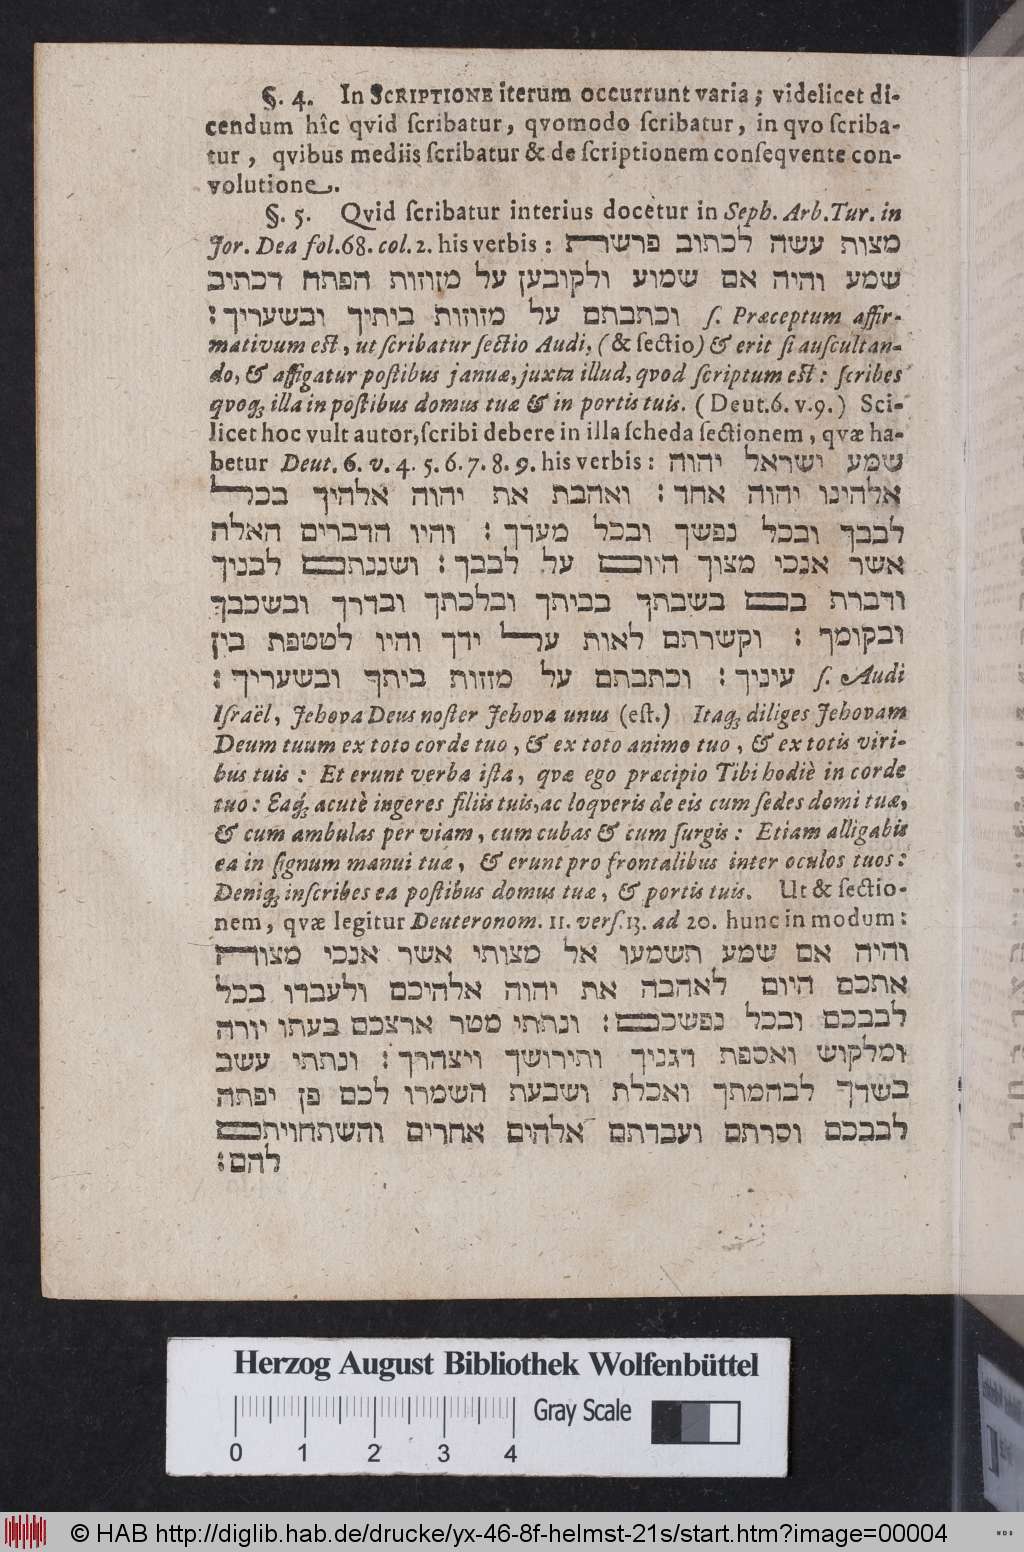 §. 4. In SCRIPTIONE iterum occurrunt varia; videlicet di-
cendum hîc qvid ſcribatur, qvomodo ſcribatur, in qvo ſcriba-
tur, qvibus mediis ſcribatur & de ſcriptionem conſeqvente con-
volutione.
§. 5. Qvid ſcribatur interius docetur in Seph. Arb. Tur. in
Jor. Dea fol. 68. col. 2. his verbis: מצות עשה לכתוב פרשת
שמע והיה אם שמוע ולקובען על מזוזות הפתח דכתיב
וכתבתם על מזוזות ביתיך ובשעריך: ſ. Præceptum affir-
mativum eſt, ut ſcribatur ſectio Audi, (& ſectio) & erit ſi auſcultan-
do, & affigatur poſtibus januæ, juxta illud, qvod ſcriptum eſt: ſcribes
qvoq; illa in poſtibus domus tuæ & in portis tuis. (Deut. 6. v. 9.) Sci-
licet hoc vult autor, ſcribi debere in illa ſcheda ſectionem, qvæ ha-
betur Deut. 6. v. 4. 5. 6. 7. 8. 9. his verbis: שמע ישראל יהוה
אלהינו יהוה אחד: ואהבת את יהוה אלהיך בכל
לבבך ובכל נפשך ובכל מעדך: והיו הדברים האלה
אשר אנכי מצוך היום על לבבך: ושננתם לבניך
ודברת בם בשבתך בביתך ובלכתך ובדרך ובשכבך
ובקומך: וקשרתם לאות על ידך והיו לטטפת בין
עיניך: וכתבתם על מזזות ביתך ובשעריך: ſ. Audi
Iſraël, Jehova Deus noſter Jehova unus (eſt.) Itaq; diliges Jehovam
Deum tuum ex toto corde tuo, & ex toto animo tuo, & ex totis viri-
bus tuis: Et erunt verba iſta, qvæ ego præcipio Tibi hodiè in corde
tuo: Eaq; acutè ingeres filiis tuis, ac loqveris de eis cum ſedes domi tuæ,
& cum ambulas per viam, cum cubas & cum ſurgis: Etiam alligabis
ea in ſignum manui tuæ, & erunt pro frontalibus inter oculos tuos:
Deniq; inſcribes ea poſtibus domus tuæ, & portis tuis. Ut & ſectio-
nem, qvæ legitur Deuteronom. 11. verſ. 13. ad 20. hunc in modum:
והיה אם שמע תשמעו אל מצותי אשר אנכי מצוה
אתכם היום לאהבה את יהוה אלהיכם ולעבדו בכל
לבבכם ובכל נפשכם: ונתתי מטר ארצכם בעתו יורה
ומלקוש ואספת דגניך ותירושך ויצהרך: ונתתי עשב
בשדך לבהמתך ואכלת ושבעת השמרו לכם פן יפתה
לבבכם וסרתם ועבדתם אלהים אחרים והשתחויתם
להם:
Herzog August Bibliothek Wolfenbüttel
Gray Scale
0 1 2 3 4
© HAB http://diglib.hab.de/drucke/yx-46-8f-helmst-21s/start.htm?image=00004